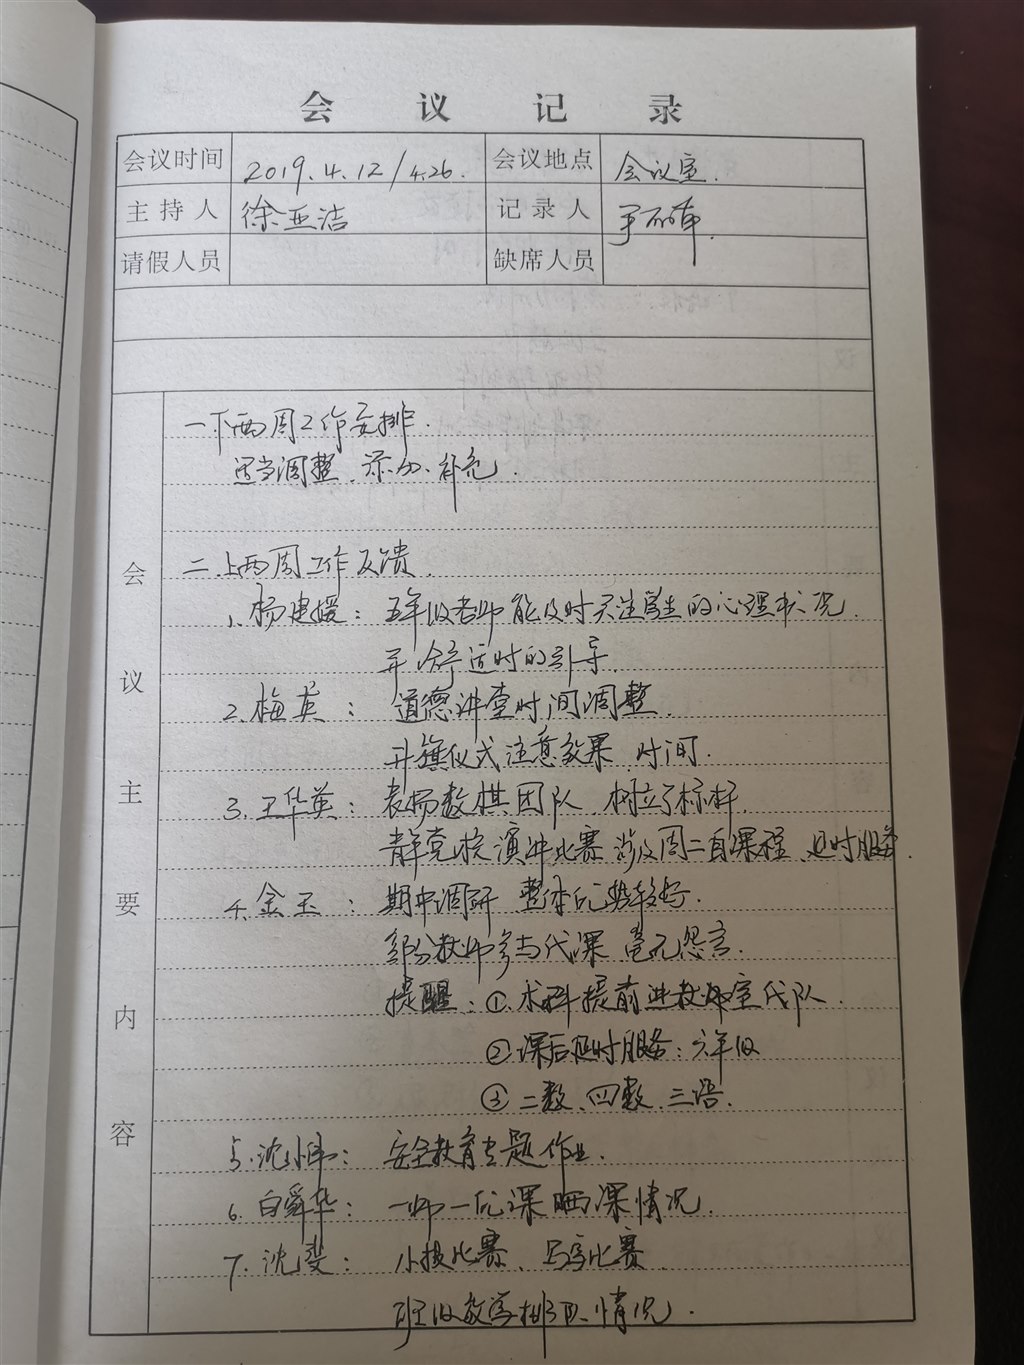 会议记录
会议时间 2019.4.12/4.26. 会议地点 会议室.
主持人 徐亚洁 记录人
请假人员 缺席人员
会议主要内容
一.下两周工作安排.
适当调整、添加、补充.
二.上两周工作反馈.
1.杨建媛：五年级老师能及时关注学生的心理状况.
并给予适时的引导.
2.梅英：道德讲堂时间调整.
升旗仪式注意效果、时间.
3.王华英：表扬数棋团队、树立了标杆.
青年党校演讲比赛 涉及周二自课程、延时服务.
4.金玉：期中调研 整体优势较好.
部分教师参与代课 毫无怨言.
提醒：①.术科提前进教室代队.
②课后延时服务：六年级
③二数、四数、三语.
5.沈小伟：安全教育专题作业.
6.白舜华：一师一优课晒课情况.
7.沈斐：小投比赛、写字比赛.
班级放学排队情况.